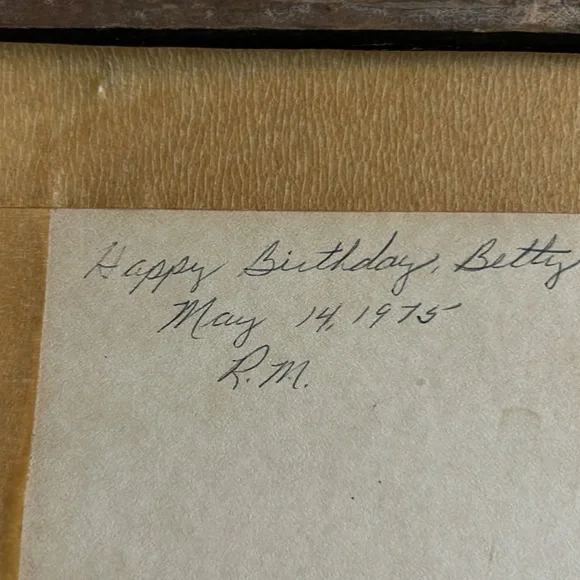 Happy Birthday, Betty
May 14, 1975
R.M.